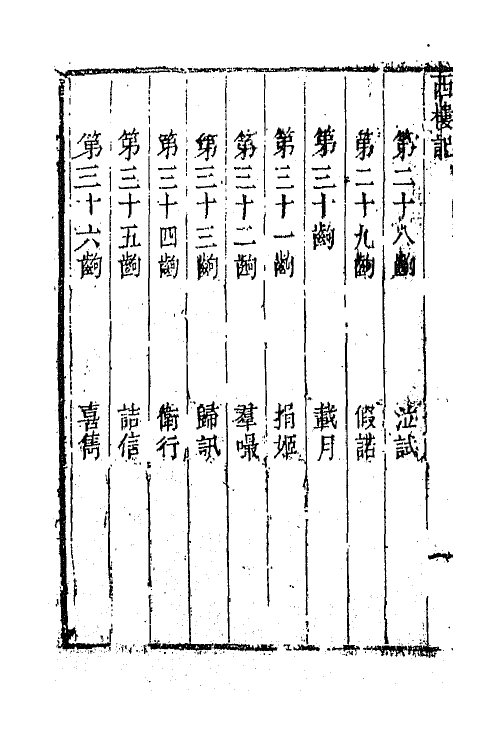 西樓記
第二十八齣　泣試
第二十九齣　假諾
第三十齣　載月
第三十一齣　捐姬
第三十二齣　羣囁
第三十三齣　歸訊
第三十四齣　衛行
第三十五齣　詰信
第三十六齣　喜雋